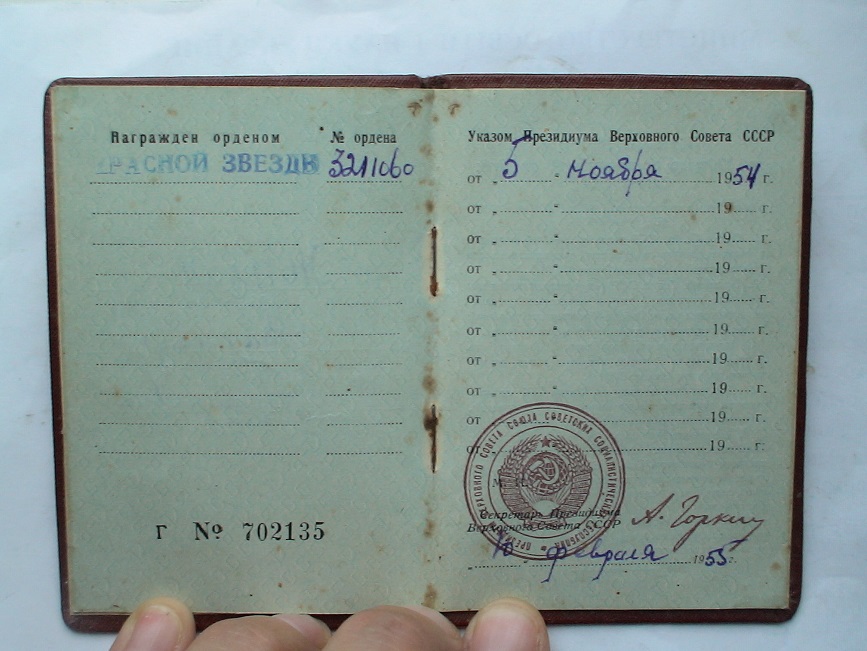 Награжден орденом № ордена
КРАСНОЙ ЗВЕЗДЫ 3211060
Г № 702135
Указом Президиума Верховного Совета СССР
от „ 5 “ Ноября 1954 г.
от „ “ 19 г.
от „ “ 19 г.
от „ “ 19 г.
от „ “ 19 г.
от „ “ 19 г.
от „ “ 19 г.
от „ “ 19 г.
от „ “ 19 г.
от „ “ 19 г.
М. П.
Секретарь Президиума
Верховного Совета СССР А. Горкин
„ 10 февраля 1955 г.
ВЕРХОВНОГО СОВЕТА СОЮЗА СОВЕТСКИХ СОЦИАЛИСТИЧЕСКИХ